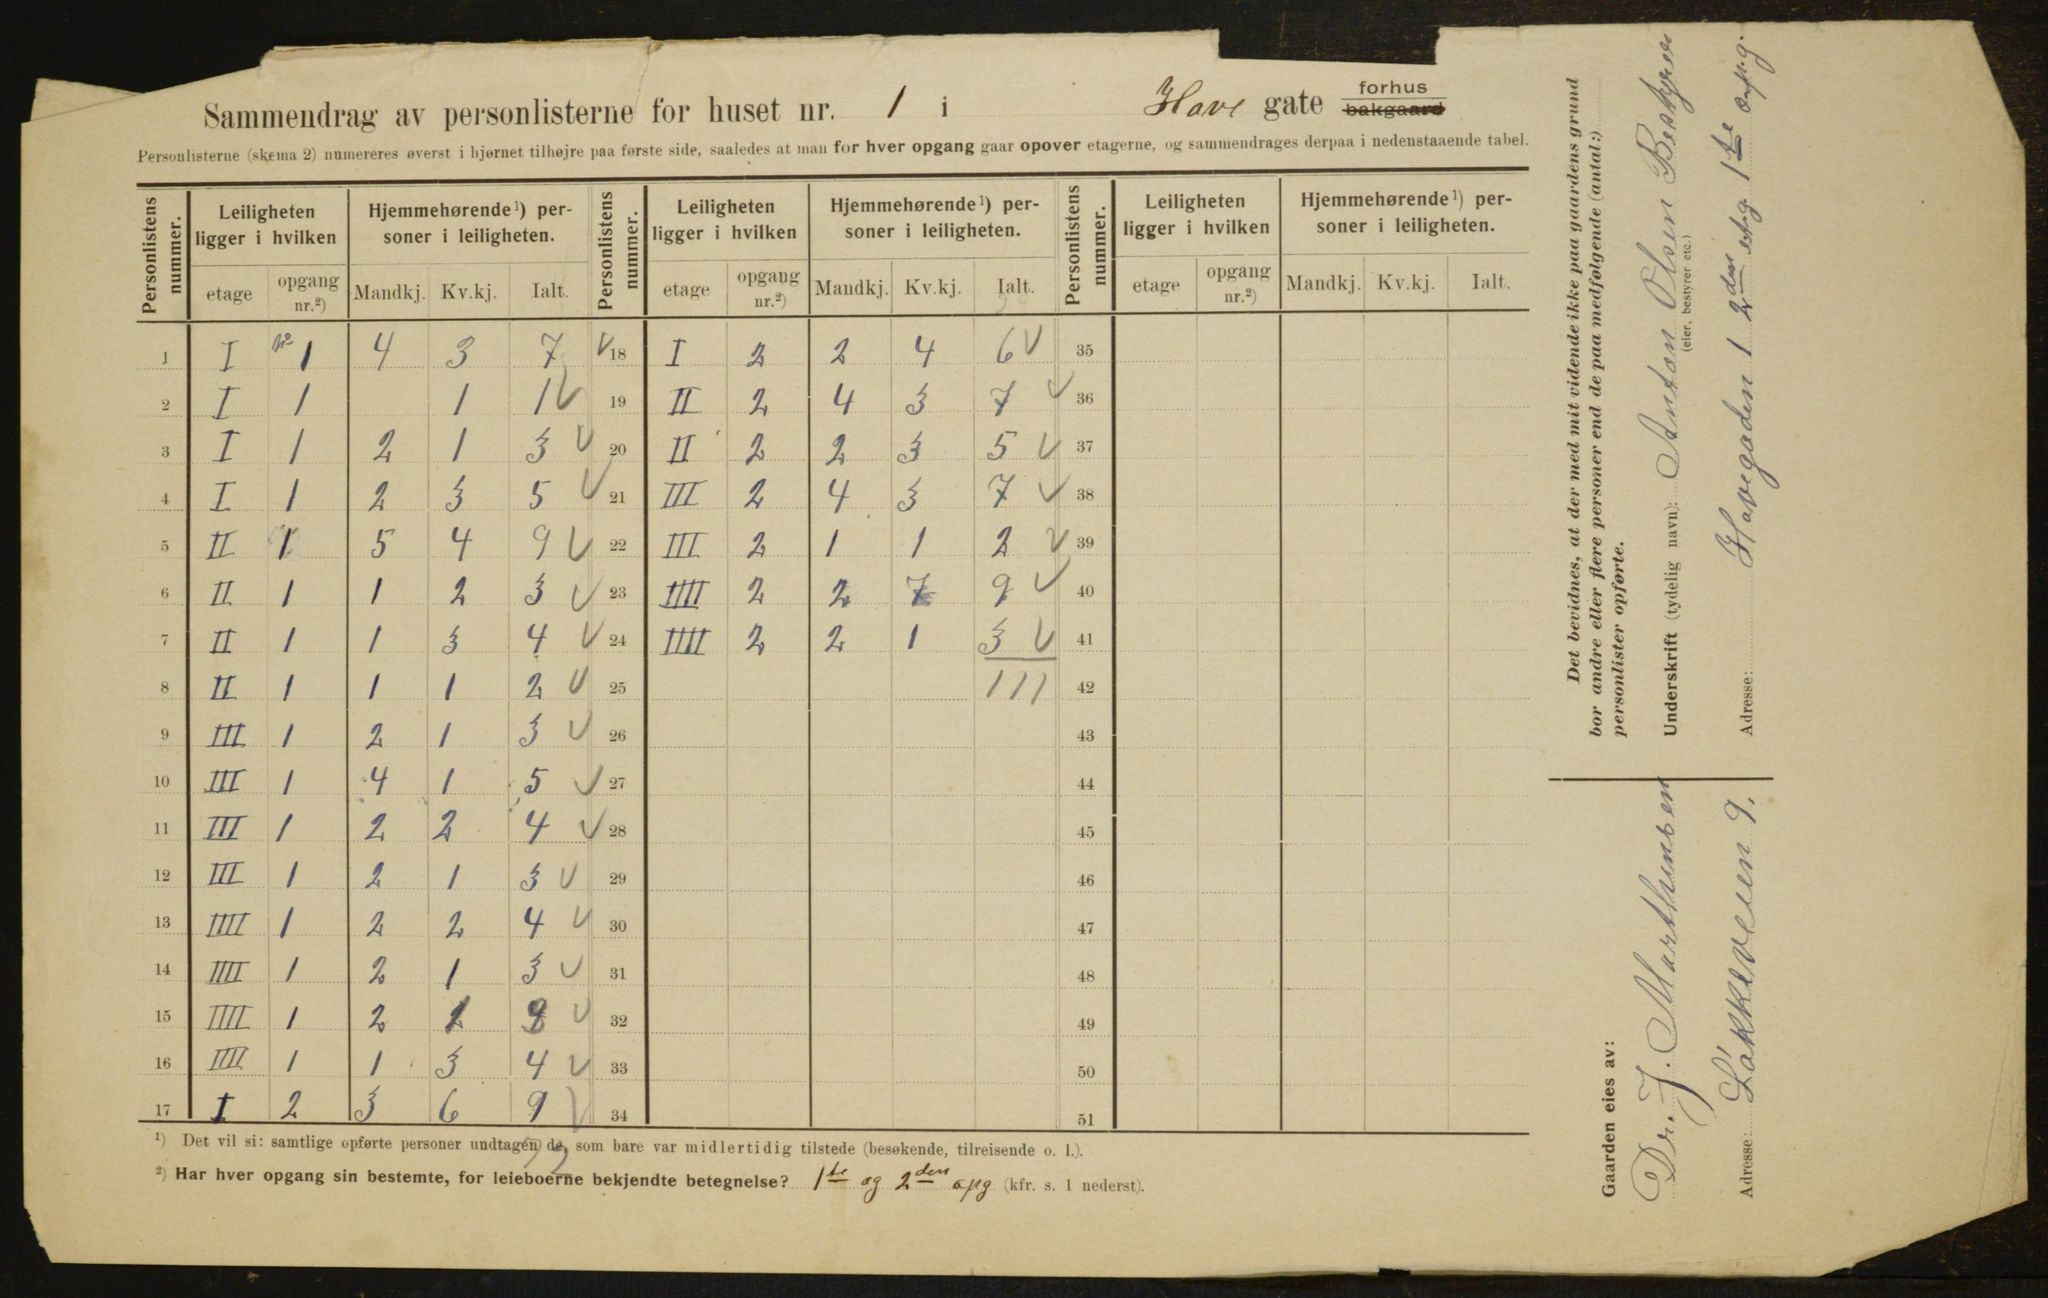 Sammendrag av personlisterne for huset nr. 1 i Have gate forhus bakgaard
Personlisterne (skema 2) numereres øverst i hjørnet tilhøjre paa første side, saaledes at man for hver opgang gaar opover etagerne, og sammendrages derpaa i nedenstaaende tabel.
Personlistens nummer. Leiligheten ligger i hvilken Hjemmehørende¹) personer i leiligheten. Personlistens nummer. Leiligheten ligger i hvilken Hjemmehørende¹) personer i leiligheten. Personlistens nummer. Leiligheten ligger i hvilken Hjemmehørende¹) personer i leiligheten.
etage opgang nr.²) Mandkj. Kv.kj. Ialt. etage opgang nr.²) Mandkj. Kv.kj. Ialt. etage opgang nr.²) Mandkj. Kv.kj. Ialt.
1 I 1 4 3 7 18 I 2 2 4 6 35
2 I 1 1 1 19 II 2 4 3 7 36
3 I 1 2 1 3 20 II 2 2 3 5 37
4 I 1 2 3 5 21 III 2 4 3 7 38
5 II 1 5 4 9 22 III 2 1 1 2 39
6 II 1 1 2 3 23 IIII 2 2 7 9 40
7 II 1 1 3 4 24 IIII 2 2 1 3 41
8 II 1 1 1 2 25 111 42
9 III 1 2 1 3 26 43
10 III 1 4 1 5 27 44
11 III 1 2 2 4 28 45
12 III 1 2 1 3 29 46
13 IIII 1 2 2 4 30 47
14 IIII 1 2 1 3 31 48
15 IIII 1 2 32 49
16 IIII 1 1 3 4 33 50
17 I 2 3 6 9 34 51
¹) Det vil si: samtlige opførte personer undtagen de, som bare var midlertidig tilstede (besøkende, tilreisende o. l.).
72
²) Har hver opgang sin bestemte, for leieboerne bekjendte betegnelse? 1te og 2den opg (kfr. s. 1 nederst).
Det bevidnes, at der med mit vidende ikke paa gaardens grund
bor andre eller flere personer end de paa medfølgende (antal:)
personlister opførte.
Underskrift (tydelig navn): Anton Olsen Bestyrer
(eier, bestyrer etc.)
Adresse: Havegaden 1 2den etg 1te opg.
Gaarden eies av:
Dr. J. Marthinsen
Adresse: Løkkeveien 9.